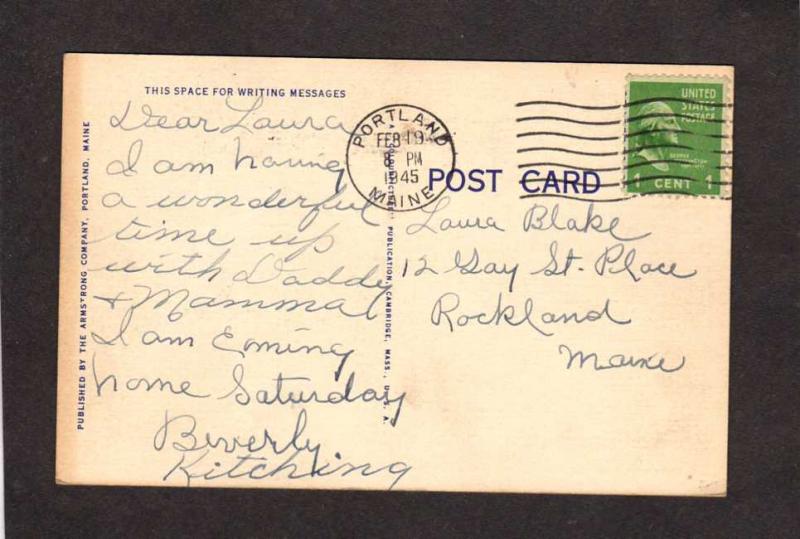 THIS SPACE FOR WRITING MESSAGES
Dear Laura
I am having
a wonderful
time up
with Daddy
+ Mamma
I am Coming
home Saturday
Beverly
Kitching
PUBLISHED BY THE ARMSTRONG COMPANY, PORTLAND, MAINE
PUBLICATION, CAMBRIDGE, MASS., U. S. A.
PORTLAND
FEB 19
8 PM
1945
MAINE
UNITED
STATES
POSTAGE
GEORGE
WASHINGTON
1 CENT 1
POST CARD
Laura Blake
12 Gay St. Place
Rockland
Maine